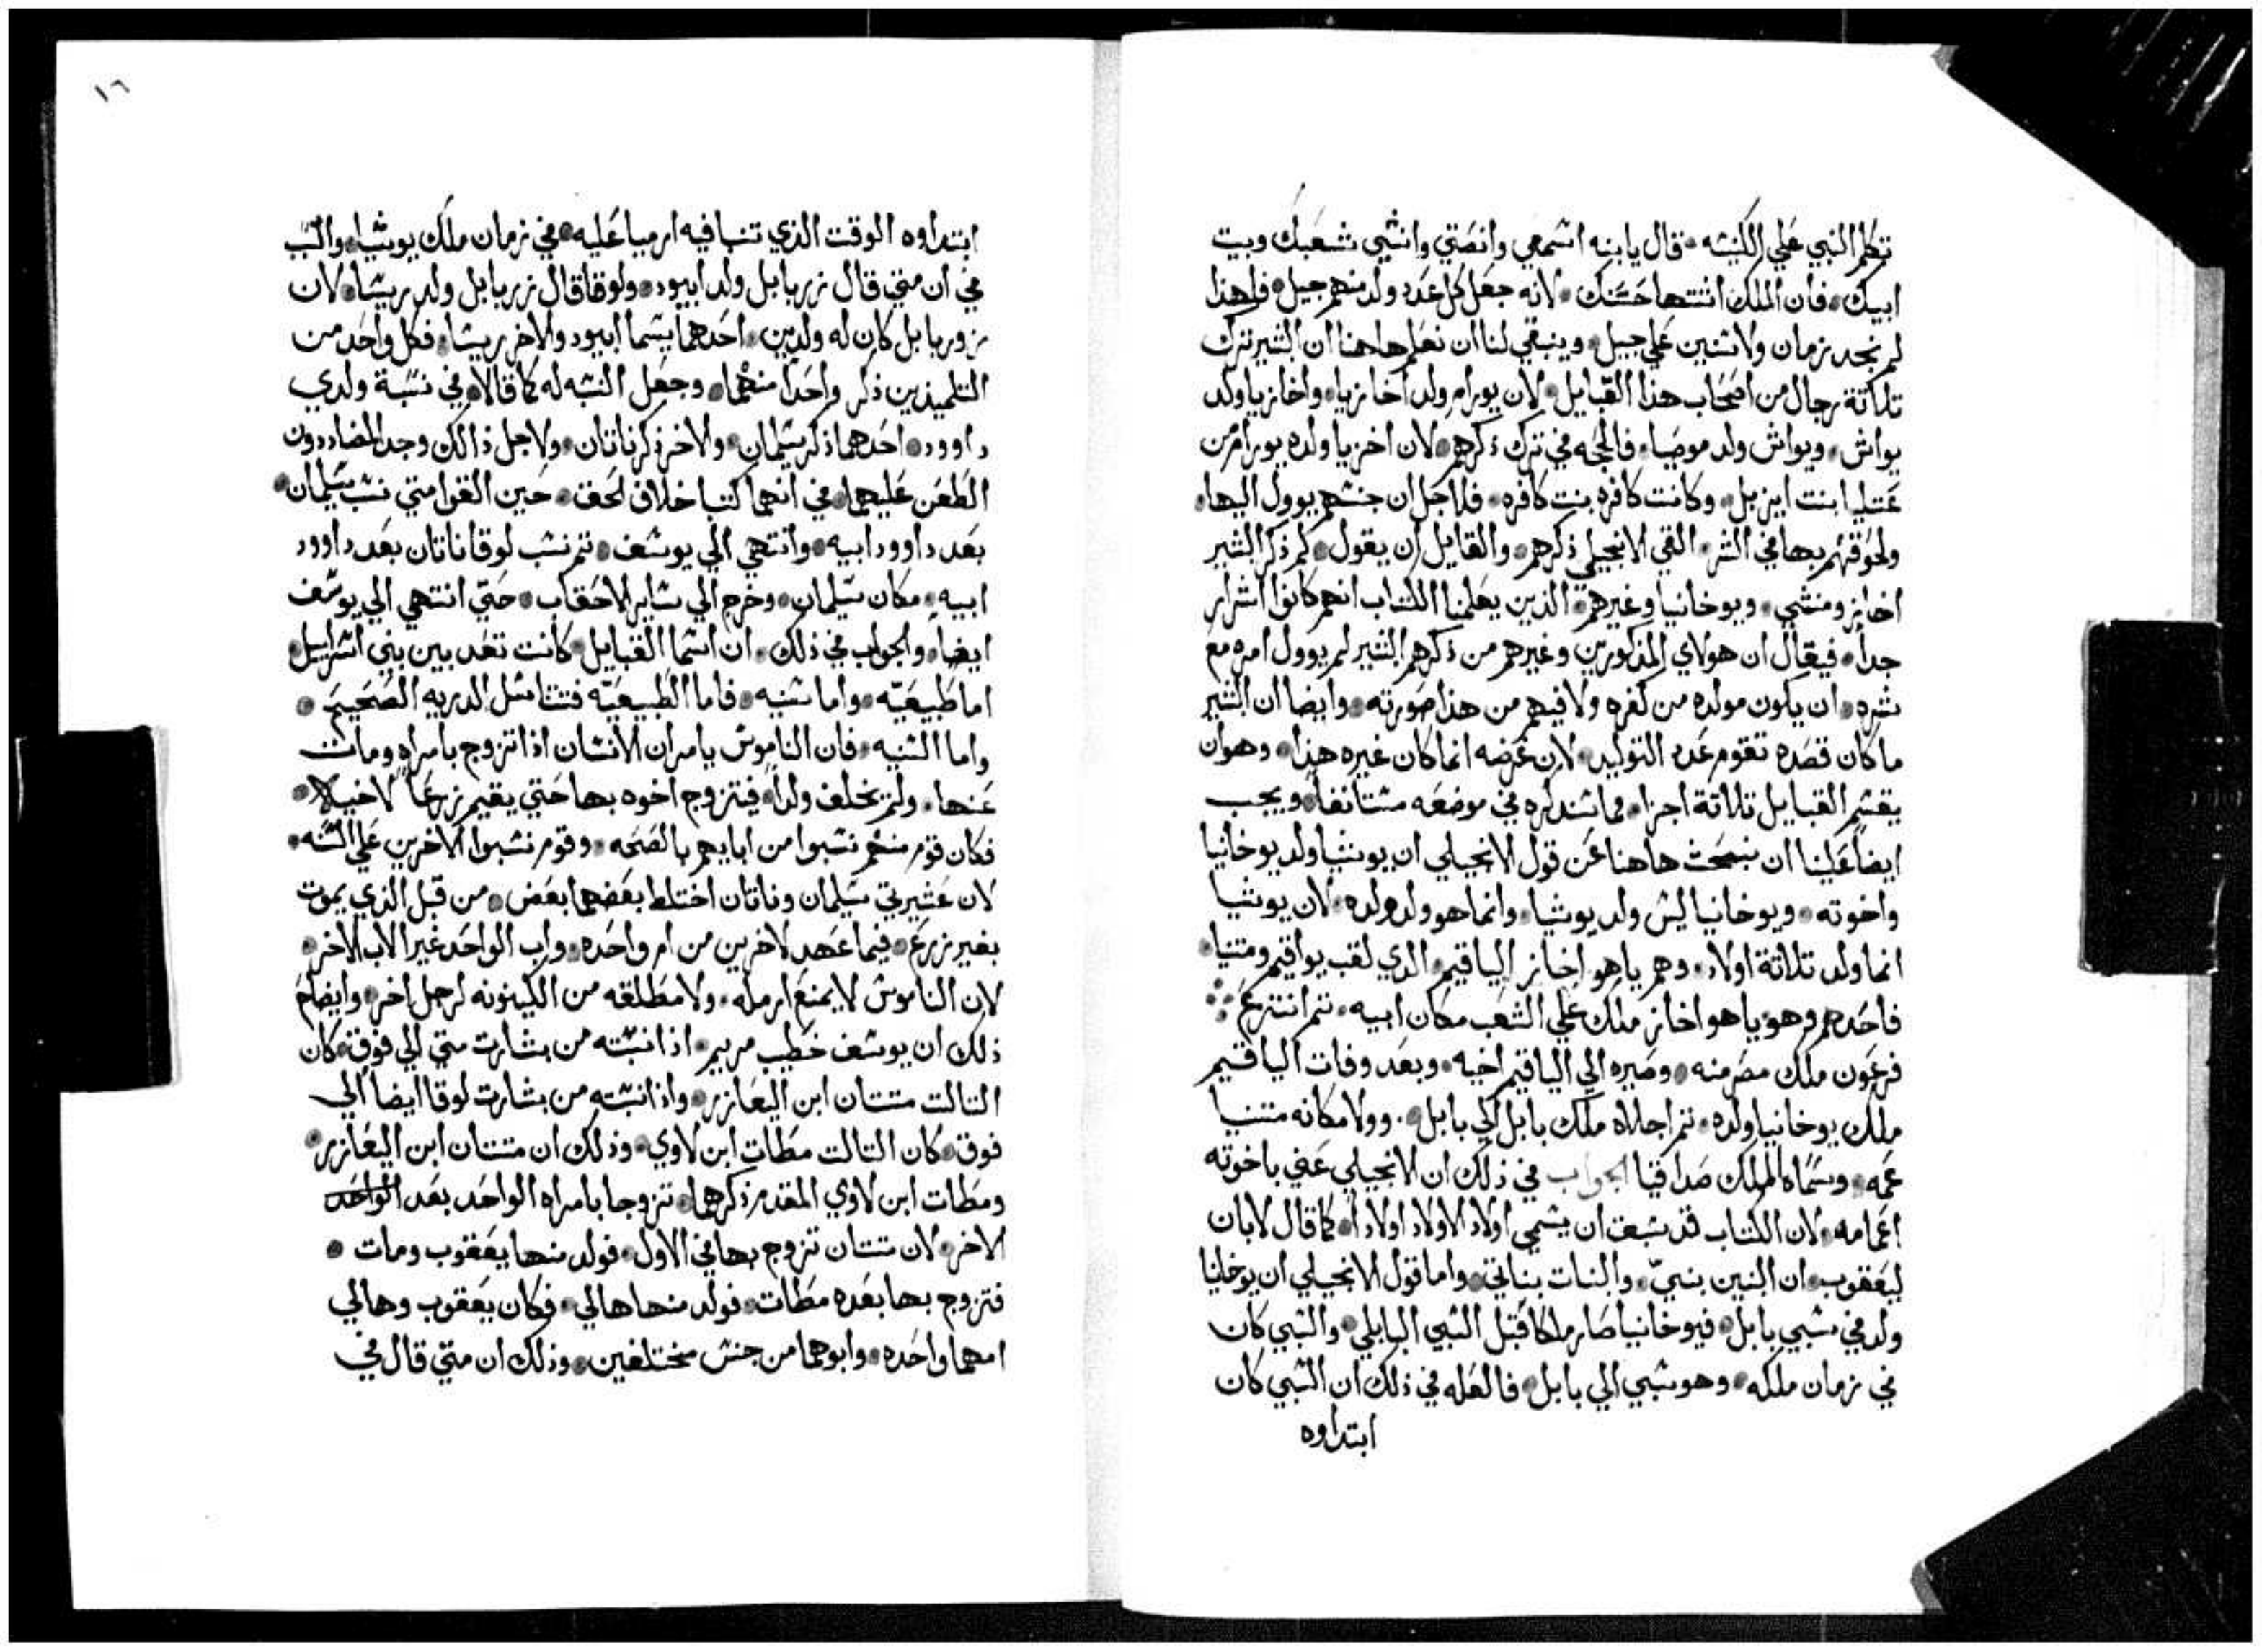 تكلم النبي علي الكنيسه • قال يا ابنه اسمعي وانصتي وانسي شعبك وبيت
ابيك • فان الملك اشتها حسنك • لانه جعل كل عدد ولد منهم جيل • فلهذا
لم نجد زمان ولا سنين علي جيل • وينبغي لنا ان نعلم هاهنا ان البشير ترك
تلاتة رجال من اصحاب هذا القبايل • لان يورام ولد اخازيا • واخازيا ولد
يواش • ويواش ولد موصيا • فالحجه في ترك ذكرهم • لان اخزيا ولده يورام من
عتليا ابنت ايزبل • وكانت كافره بنت كافره • فلاجل ان جنسهم يوول اليها •
ولحوقهم بها في الشر • القي الانجيلي ذكرهم • والقايل ان يقول • لم ذكر البشير
اخاز ومنشي • ويوخانيا وغيرهم • الذين يعلمنا الكتاب انهم كانوا اشرار
جداً • فيقال ان هولاي المذكورين وغيرهم من ذكرهم البشير لم يوول امره مع
شره • ان يكون مولده من كفره ولا فيهم من هذا صورته • وايضا ان البشير
ما كان قصده تقوم عدد التوليد • لان غرضه انما كان غيره هذا • وهو ان
يقسم القبايل تلاتة اجزا • فما سنذكره في موضعه مستانفا • ويجب
ايضا علينا ان نبحث هاهنا عن قول الانجيلي ان يوشيا ولد يوخانيا
واخوته • ويوخانيا ليس ولد يوشيا • وانما هو ولد ولده • لان يوشيا
انما ولد تلاتة اولاد • وهم ياهو اخاز الياقيم • الدي لقب يواقيم ومتنيا •
فاحدهم وهو ياهو اخاز ملك علي الشعب مكان ابيه • تم انتزع
فرعون ملك مصر منه • وصيره الي الياقيم اخيه • وبعد وفات الياقيم
ملك يوخانيا ولده • تم اجلاه ملك بابل الي بابل • وولا مكانه متنيا
عمه • وسماه الملك صداقيا الجواب في ذلك ان الانجيلي عني باخوته
اعمامه • لان الكتاب قد سبق ان يسمي اولاد الاولاد اولادا • كما قال لابان
ليعقوب • ان البنين بنيّ • والبنات بناتي • واما قول الانجيلي ان يوخانيا
ولد في سبي بابل • فيوخانيا صار ملكا قبل السبي البابلي • والسبي كان
في زمان ملكه • وهو سبي الي بابل • فالعله في ذلك ان السبي كان
ابتداوه
١٦
ابتداوه الوقت الذي تنبا فيه ارميا عليه • في زمان ملك يوشيا • والسبب
في ان متي قال زربابل ولد ابيود • ولوقا قال زربابل ولد ريشا • لان
زوربابل كان له ولدين • احدهما يسما ابيود والاخر ريشا • فكل واحد من
التلميذين ذكر واحداً منهما • وجعل النسبه له كما قالا • في نسبة ولدي
داوود • احدهما ذكر سليمان • والاخر ذكر ناتان • ولاجل ذالك وجد المضاددون
الطعن عليهما • في انهما كتبا خلاف الحق • حين القوا متي نسب سليمان •
بعد داوود ابيه • وانتهي الي يوسف • تم نسب لوقا ناتان بعد داوود
ابيه • مكان سليمان • وخرج الي ساير الاحقاب • حتي انتهي الي يوسف
ايضا • والجواب في ذلك • ان اسما القبايل • كانت تعد بين بني اسراييل •
اما طبيعيه • واما سنيه • فاما الطبيعيه فتتناسل الدريه الصحيح •
واما السنيه • فان الناموس يامر ان الانسان اذا تزوج بامراه ومات
عنها • ولم يخلف ولداً • فيتزوج اخوه بها حتي يقيم زرعاً لاخيه •
فكان قوم منهم نسبوا من ابايهم بالصحه • وقوم نسبوا الاخرين علي السنه •
لان عشيرتي سليمان وناتان اختلط بعضهما بعض • من قبل الذي يموت
بغير زرع • فيما عهد لاخرين من ام واحده • واب الواحد غير الاب الاخر •
لان الناموس لا يمنع ارمله • ولا مطلقه من الكينونه لرجل اخر • وايضاح
ذلك ان يوسف خطيب مريم • اذا نسبته من بشارت متي الي فوق • كان
التالت متتان ابن اليعازر • واذا نسبته من بشارت لوقا ايضا الي
فوق • كان التالت مطات ابن لاوي • وذلك ان متتان ابن اليعازر •
ومطات ابن لاوي المقدم ذكرهما • تزوجا بامراه الواحد بعد الواحد
الاخر • لان متتان تزوج بها في الاول • فولد منها يعقوب ومات •
فتزوج بها بعده مطات • فولد منها هالي • فكان يعقوب وهالي
امهما واحده • وابوهما من جنس مختلفين • وذلك ان متي قال في